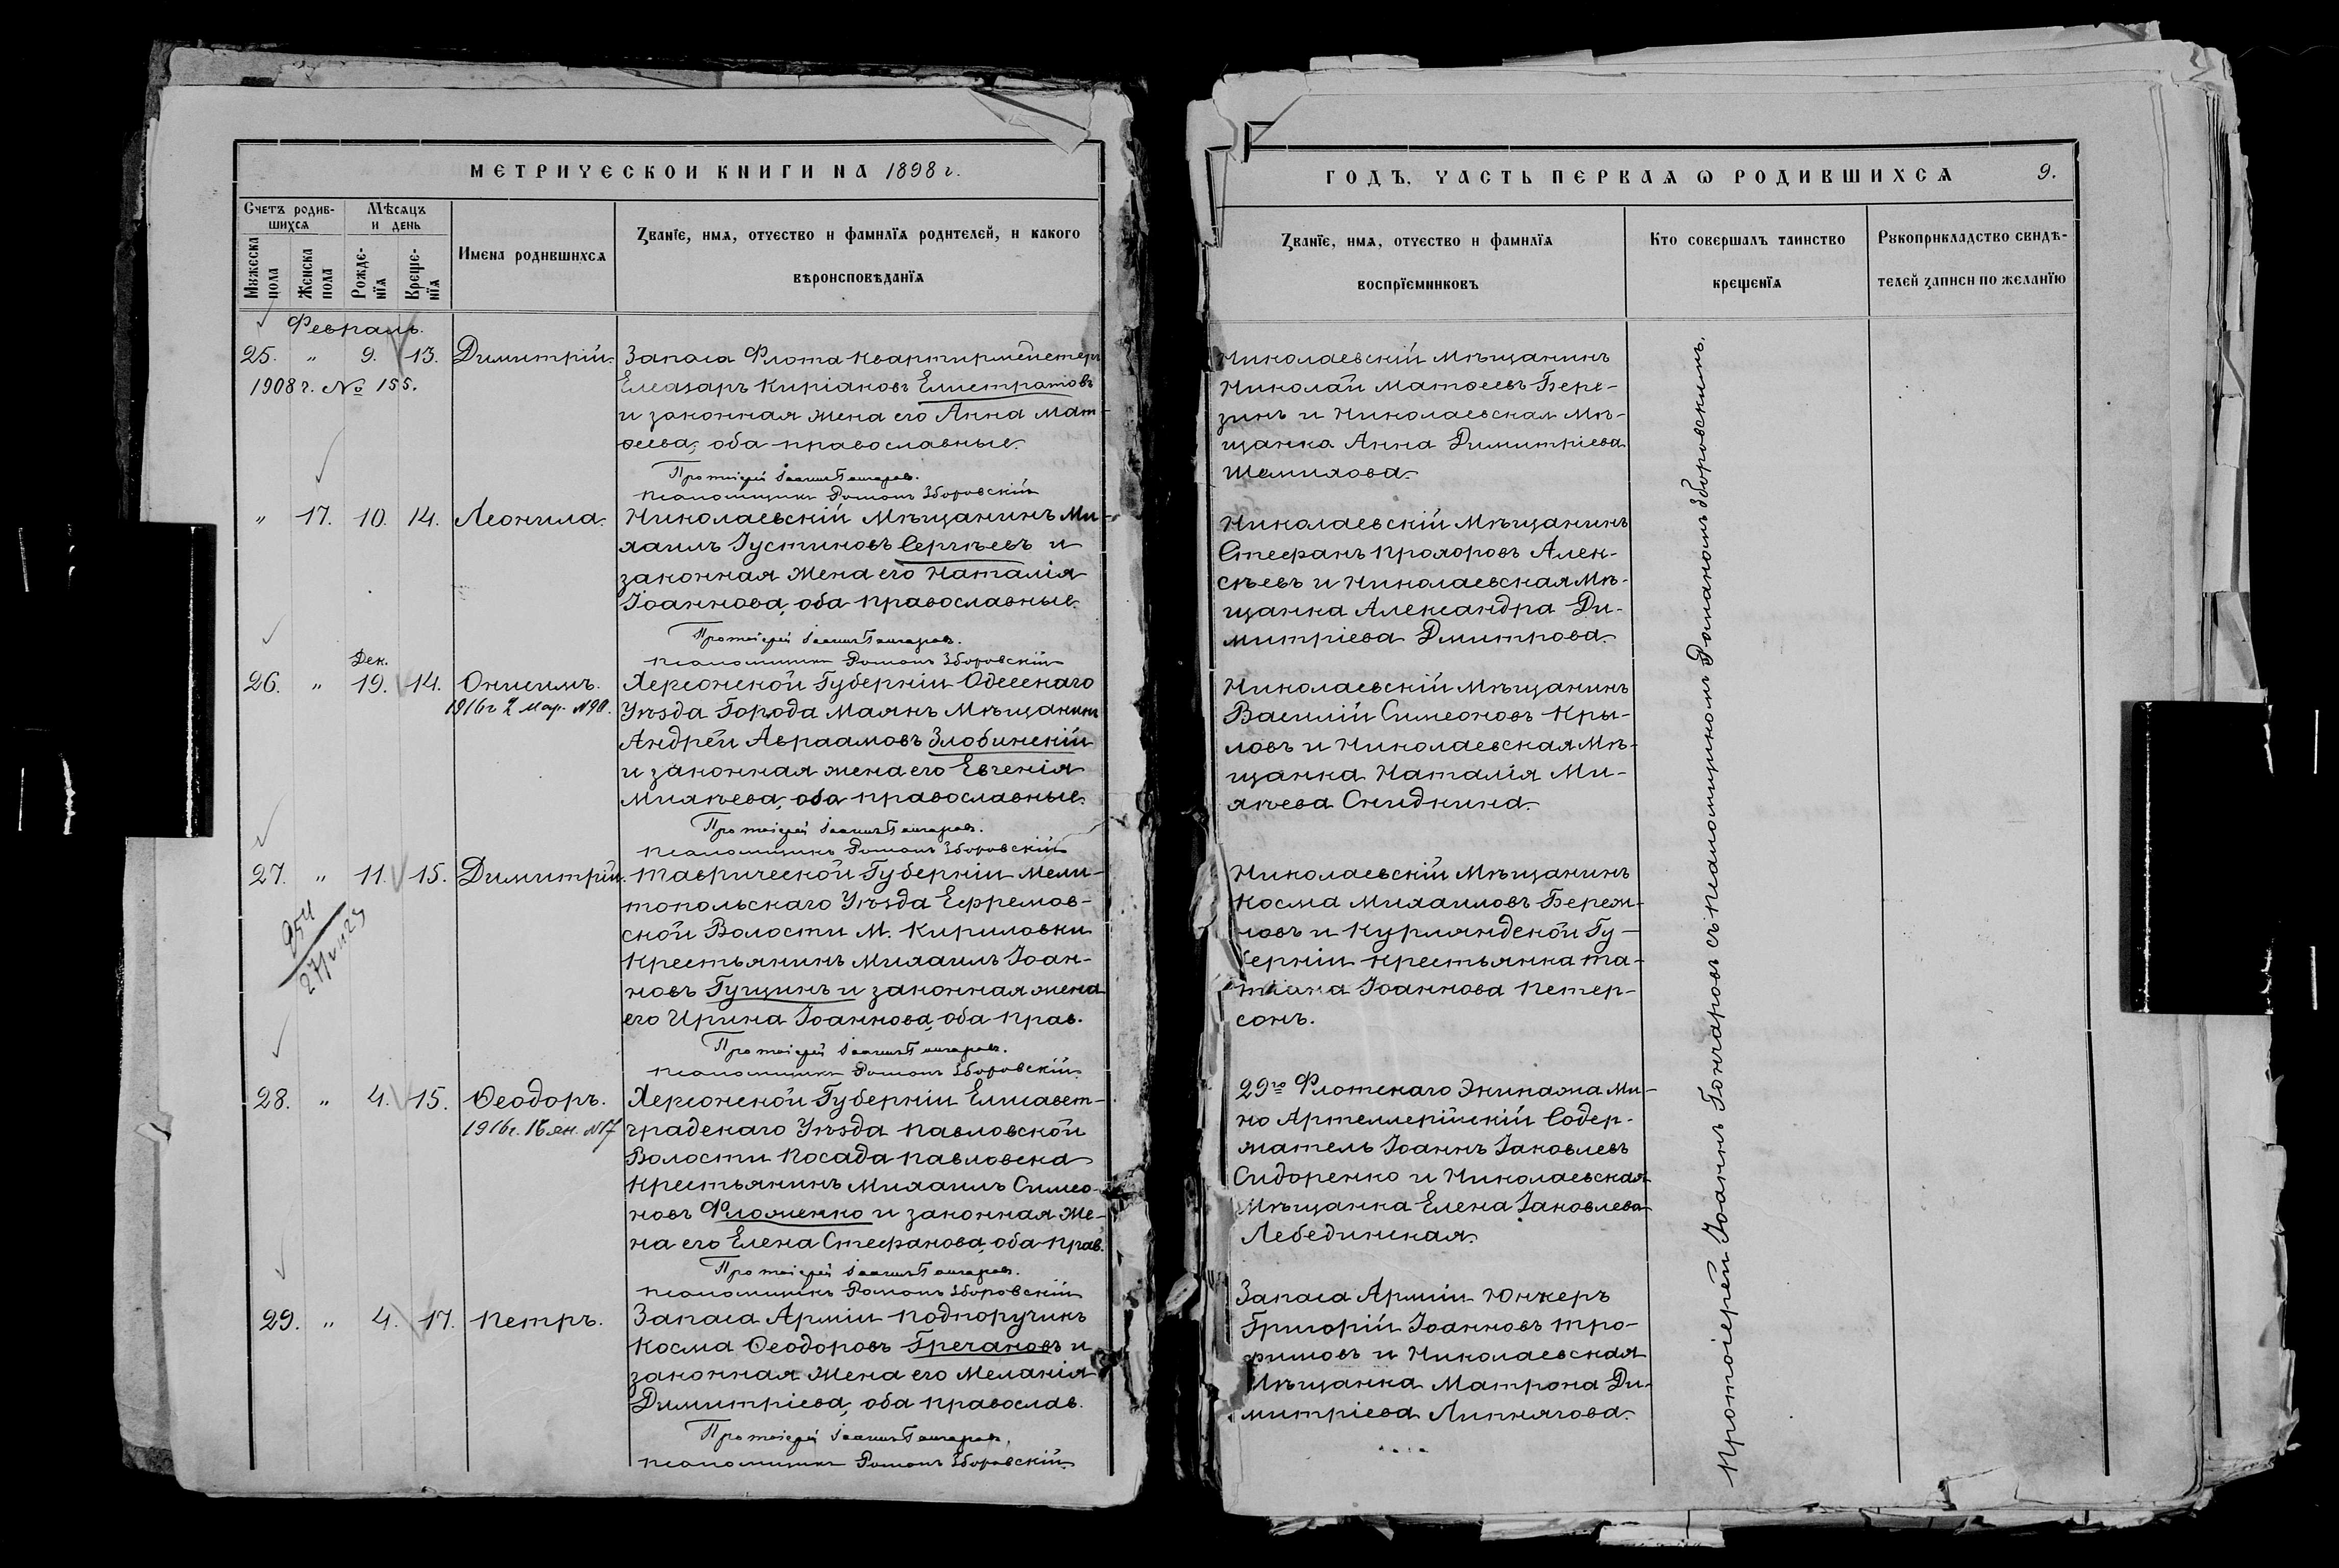 МЕТРИЧЕСКОЙ КНИГИ НА 1898 г.
Счетъ родив-
шихся
Мѣсяцъ
и день
Мужеска пола
Женска пола
Рожде-
нія
Креще-
нія
Имена родившихся
Званіе, имя, отчество и фамилія родителей, и какого
вѣроисповѣданія
Февраль.
25. " 9. 13. Димитрій.
1908 г. № 155.
Запаса Флота Квартирмейстеръ
Елеазаръ Киріаковъ Елистратовъ
и законная жена его Анна Мат-
ѳеева, оба православные.
Протоіерей Іоаннъ Гончаровъ.
Псаломщикъ Романъ Зборовскій
" 17. 10. 14. Леонила.
Николаевскій Мѣщанинъ Ми-
хаилъ Іустиновъ Сергѣевъ и
законная Жена его Наталія
Іоаннова, оба православные.
Протоіерей Іоаннъ Гончаровъ.
Псаломщикъ Романъ Зборовскій
Дек.
26. " 19. 14. Онисимъ.
1916 г 2 Мар. №90.
Херсонской Губерніи Одесскаго
Уѣзда Города Маякъ Мѣщанинъ
Андрей Авраамовъ Злобинскій
и законная жена его Евгенія
Михѣева, оба православные.
Протоіерей Іоаннъ Гончаровъ.
Псаломщикъ Романъ Зборовскій
27. " 11. 15. Димитрій.
Таврической Губерніи Мели-
топольскаго Уѣзда Ефремов-
ской Волости М. Кириловки
Крестьянинъ Михаилъ Іоан-
новъ Гущинъ и законная жена
его Ирина Іоаннова, оба прав.
Протоіерей Іоаннъ Гончаровъ.
Псаломщикъ Романъ Зборовскій.
28. " 4. 15. Ѳеодоръ.
1916 г. 16 ян. №17
Херсонской Губерніи Елисавет-
градскаго Уѣзда Павловской
Волости Посада Павловска
Крестьянинъ Михаилъ Симео-
новъ Фломенко и законная Же-
на его Елена Стефанова, оба прав.
Протоіерей Іоаннъ Гончаровъ.
Псаломщикъ Романъ Зборовскій
29. " 4. 17. Петръ.
Запаса Арміи Подпоручикъ
Косма Ѳеодоровъ Гречановъ и
законная Жена его Меланія
Димитріева, оба православ.
Протоіерей Іоаннъ Гончаровъ.
Псаломщикъ Романъ Зборовскій.
ГОДЪ, ЧАСТЬ ПЕРВАЯ Ѡ РОДИВШИХСЯ 9.
Званіе, имя, отчество и фамилія
воспріемниковъ
Кто совершалъ таинство
крещенія
Рукоприкладство свидѣ-
телей записи по желанію
Николаевскій Мѣщанинъ
Николай Матѳеевъ Бере-
зинъ и Николаевская Мѣ-
щанка Анна Димитріева
Шемихова.
Николаевскій Мѣщанинъ
Стефанъ Прохоровъ Алек-
сѣевъ и Николаевская Мѣ-
щанка Александра Ди-
митріева Дмитрова.
Николаевскій Мѣщанинъ
Василій Симеоновъ Кры-
ловъ и Николаевская Мѣ-
щанка Наталія Ми-
хѣева Снидкина.
Николаевскій Мѣщанинъ
Косма Михаиловъ Береж-
новъ и Курляндской Гу-
берніи Крестьянка Та-
тіана Іоаннова Петер-
сонъ.
29го Флотскаго Экипажа Ми-
но Артеллерійскій Содер-
жатель Іоаннъ Іаковлевъ
Сидоренко и Николаевская
Мѣщанка Елена Іаковлева
Лебединская.
Запаса Арміи Юнкеръ
Григорій Іоанновъ Тро-
фимовъ и Николаевская
Мѣщанка Матрона Ди-
митріева Липнягова.
Протоіерей Іоаннъ Гончаровъ съ псаломщикомъ Романомъ Зборовскимъ.